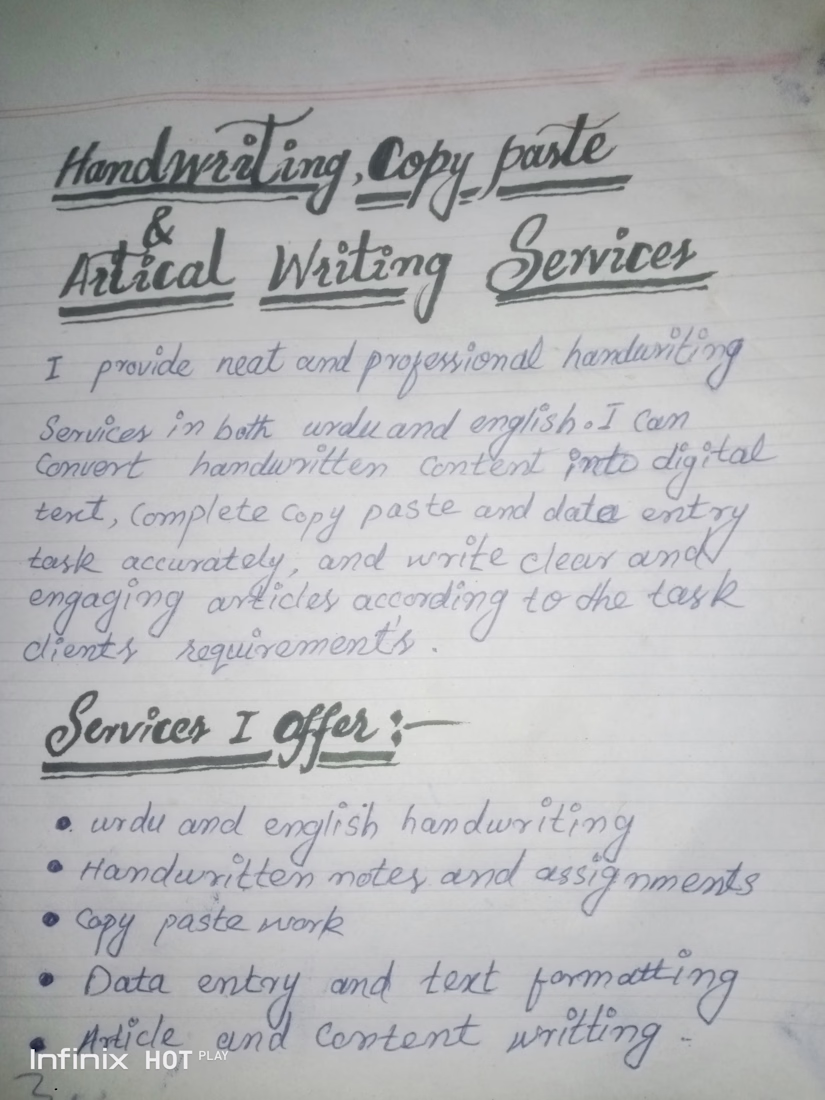 Handwriting, Copy paste
&
Artical Writing Services
I provide neat and professional handwriting
Services in both urdu and english. I Can
Convert handwritten Content into digital
text, Complete Copy paste and data entry
task accurately, and write clear and
engaging articles according to the task
clients requirement's.
Services I Offer :—
• urdu and english handwriting
• Handwritten notes and assignments
• Copy paste work
• Data entry and text formatting
• Article and Content writting -
Infinix HOT PLAY